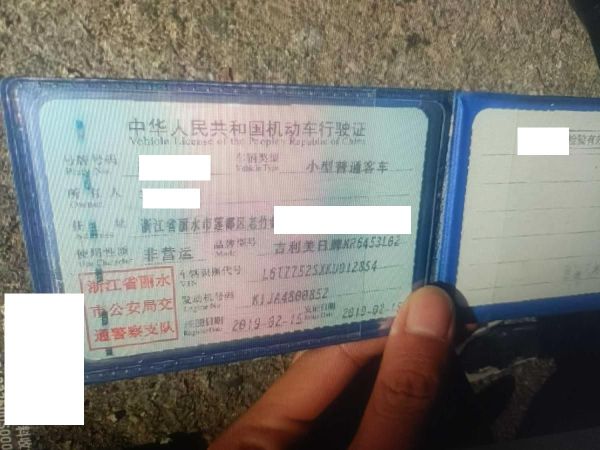 中华人民共和国机动车行驶证
Vehicle License of the People's Republic of China
号牌号码
Plate No.
车辆类型
Vehicle Type
小型普通客车
所有人
Owner
住址
浙江省丽水市莲都区老竹
使用性质
非营运
品牌型号
Model
吉利美日牌MR6453L62
车辆识别代号
VIN
发动机号码
Engine No.
K1JA4800852
注册日期
Register Date
2019-02-15
发证日期
Issue Date
2019-02-15
浙江省丽水
市公安局交
通警察支队